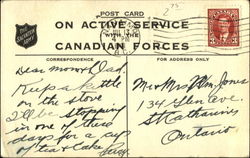 POST CARD
ON ACTIVE SERVICE
WITH THE
CANADIAN FORCES
THE
SALVATION
ARMY
CORRESPONDENCE
FOR ADDRESS ONLY
Dear Mom & Dad.
Keep a kettle
on the stove
I'll be stopping
in one of these
days for a cup
of tea & cake
Mr & Mrs Wm Jones
134
St Catharines
Ontario